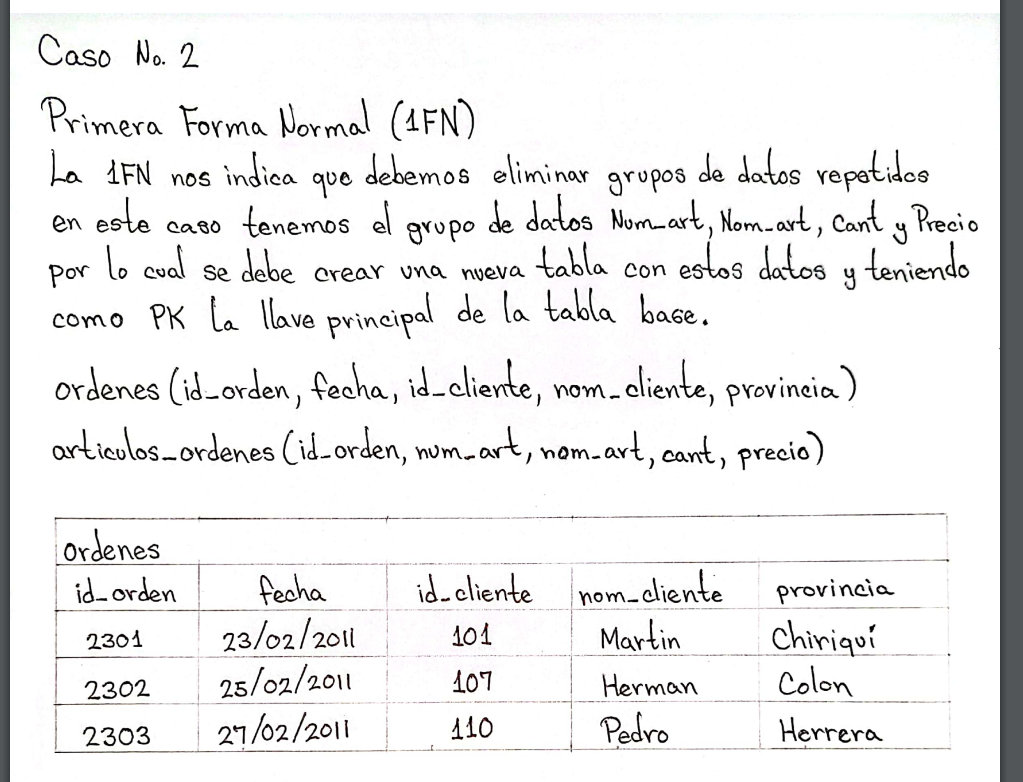 Caso No. 2
Primera Forma Normal (1FN)
La 1FN nos indica que debemos eliminar grupos de datos repetidos
en este caso tenemos el grupo de datos Num_art, Nom_art, Cant y Precio
por lo cual se debe crear una nueva tabla con estos datos y teniendo
como PK la llave principal de la tabla base.
ordenes (id_orden, fecha, id_cliente, nom_cliente, provincia)
articulos_ordenes (id_orden, num_art, nom_art, cant, precio)
ordenes
id_orden fecha id_cliente nom_cliente provincia
2301 23/02/2011 101 Martin Chiriquí
2302 25/02/2011 107 Herman Colon
2303 27/02/2011 110 Pedro Herrera